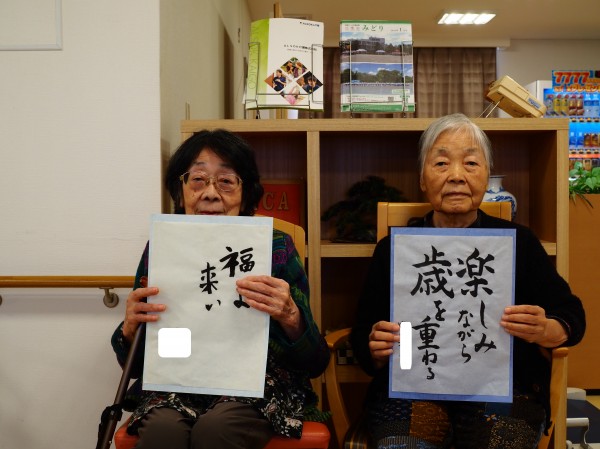 福よ
来い
楽しみ
ながら
歳を重ねる
みどり
7777
CA